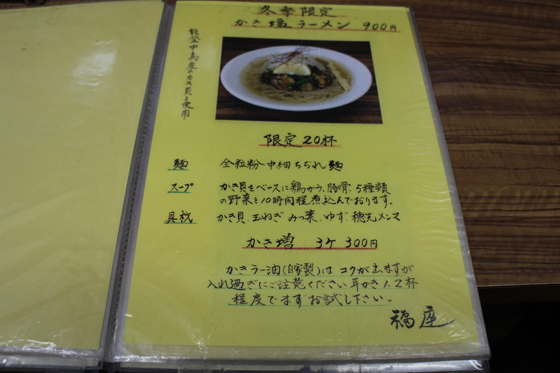 冬季限定
かき塩ラーメン 900円
能登中島産のかき貝を使用
限定20杯
麺 全粒粉中細ちぢれ麺
スープ かき貝をベースに鶏がら、豚骨、5種類
の野菜を10時間程煮込んでおります。
具材 かき貝、玉ねぎ みつ葉、ゆず 穂先メンマ
かき増 3ケ 300円
かきラー油(自家製)は コクが出ますが
入れ過ぎにご注意ください 耳かき1、2杯
程度でます お試し下さい。
福座